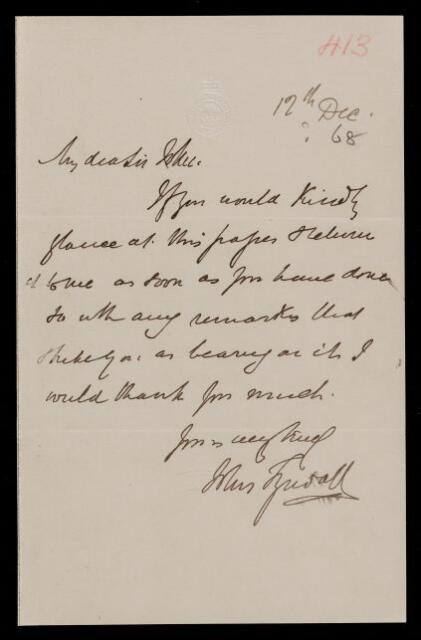 413
17th Dec.
? 68
My dear Sir John.
If you would kindly
glance at this paper & return
it to me as soon as you have done
so with any remarks that
strike you as bearing on it I
would thank you much.
Yours very truly
John Tyndall